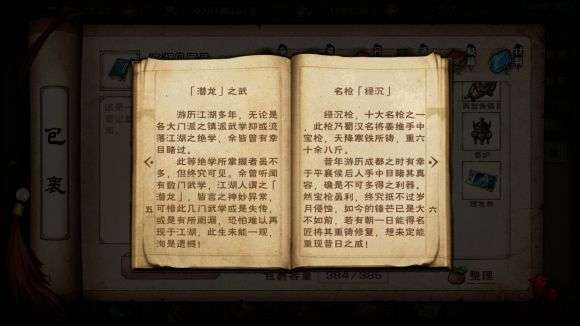 「潜龙」之武
游历江湖多年，无论是
各大门派之镇派武学抑或流
落江湖之绝学，余皆曾有幸
目睹过。
此等绝学所掌握者虽不
多，但终究可见。余曾听闻
有数门武学，江湖人谓之「
潜龙」，皆言之神妙异常，
可惜此几门武学或是失传，
或是有所阙漏，恐怕难以再
现于江湖，此生未能一观，
洵是遗憾！
五
名枪「绿沉」
绿沉枪，十大名枪之一
，此枪乃蜀汉名将姜维手中
宝枪，天降寒铁所铸，重六
十余八斤。
昔年游历成都之时有幸
于平襄侯后人手中目睹其真
容，确是不可多得之利器。
然宝枪虽利，终究抵不过岁
月侵蚀，如今的锋芒已是大
不如前，若有朝一日能得名
匠将其重铸修复，想来定能
重现昔日之威！
六
包裹
包裹容量
384/385
整理